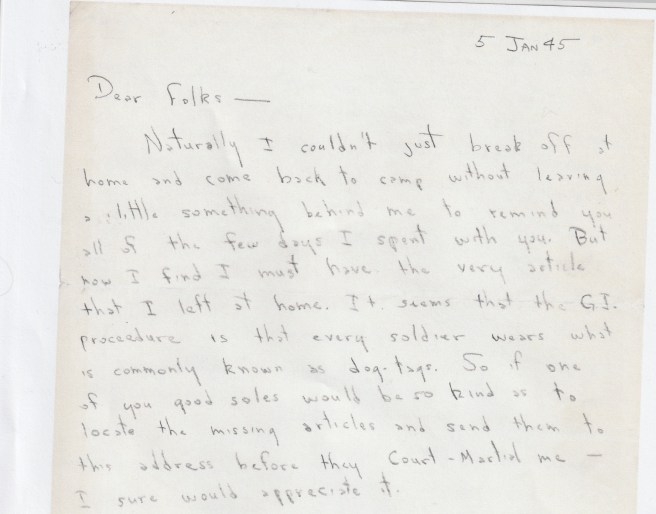 5 JAN 45
Dear Folks —
Naturally I couldn't just break off at
home and come back to camp without leaving
a little something behind me to remind you
all of the few days I spent with you. But
now I find I must have the very article
that I left at home. It seems that the GI.
proceedure is that every soldier wears what
is commonly known as dog-tags. So if one
of you good soles would be so kind as to
locate the missing articles and send them to
this address before they Court-Martial me —
I sure would appreciate it.